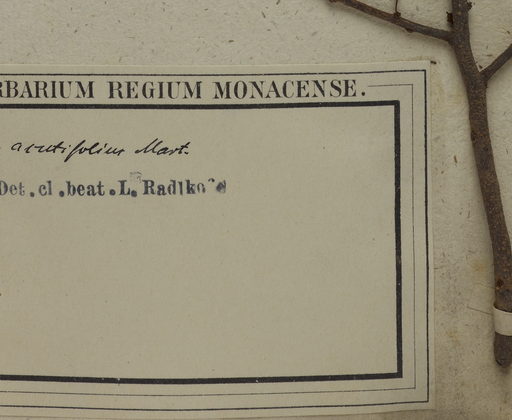 RBARIUM REGIUM MONACENSE.
acutifolius Mart.
Det. cl. beat. L. Radlkofe